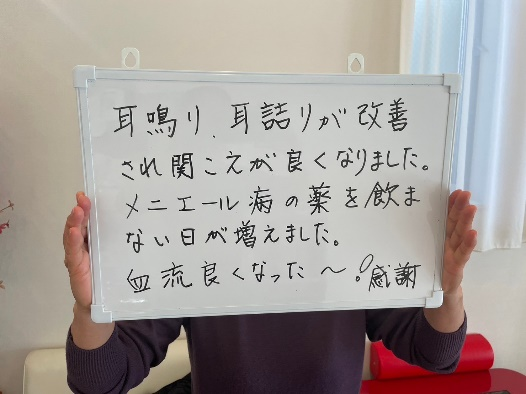 耳鳴り、耳詰りが改善
され関こえが良くなりました。
メニエール病の薬を飲ま
ない日が増えました。
血流良くなった〜!感謝